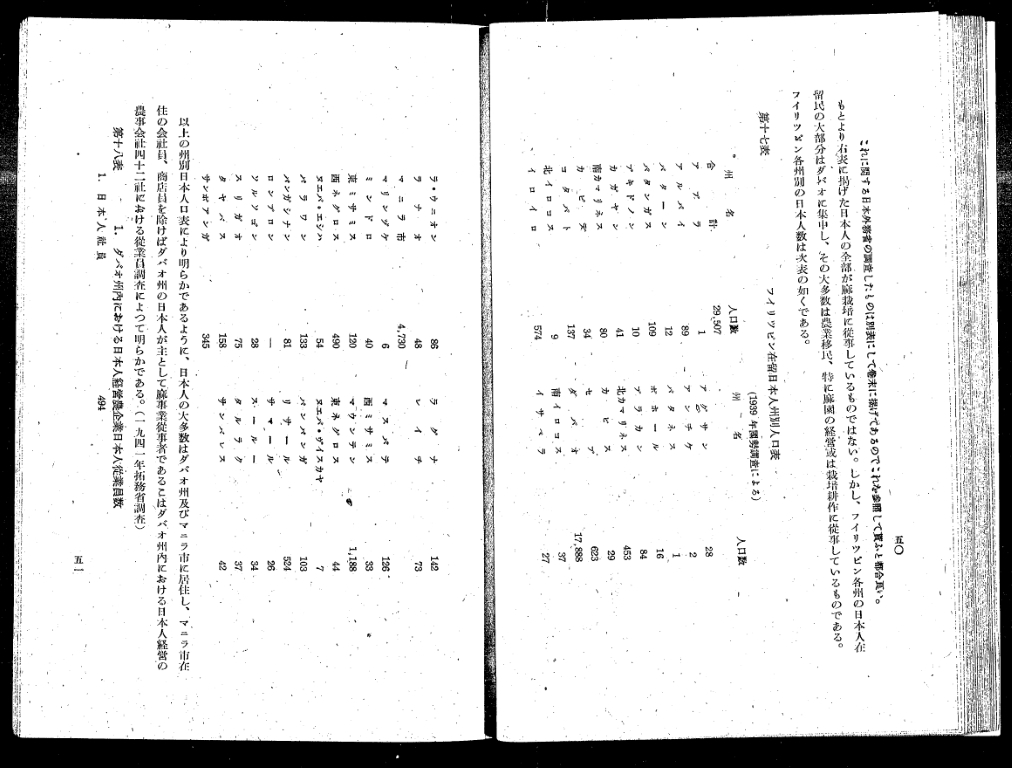 五〇
これに関する日本外務省の調査したものは別表にして巻末に掲げてあるのでこれを参照して貰ふと都合良い。
もとより右表に掲げた日本人の全部が麻栽培に從事しているものではない。しかし、フイリツピン各州の日本人在
留民の大部分はダバオに集中し、その大多数は農業移民、特に麻園の経営或は栽培耕作に從事しているものである。
フイリツピン各州別の日本人数は次表の如くである。
第十七表 フイリツピン在留日本人州別人口表
(1939年国勢調査による)
州名 人口数 州名 人口数
合計 29,507
アブラ 1 アグサン 28
アルバイ 89 アンチケ 2
バターン 12 バタネス 1
バタンガス 109 ボホール 16
ブキドノン 10 ブラカン 84
カガヤン 41 北カマリネス 453
南カマリネス 80 カピス 29
カビテ 34 セブ 623
コタバト 137 ダバオ 17,888
北イロコス 9 南イロコス 37
イロイロ 574 イサベラ 27
ラ・ウニオン 86 ラグナ 142
ラナオ 48 レイテ 73
マニラ市 4,730
マリンヅケ 6 マスバテ 126
ミンドロ 40 西ミサミス 33
東ミサミス 120 マウンテン 1,188
西ネグロス 490 東ネグロス 44
ヌエバ・エシハ 54 ヌエバ・ヴイスカヤ 7
パラワン 133 パンパンガ 103
パンガシナン 81 リサール 524
ロンブロン — サマール 26
ソルソゴン 28 スールー 34
スリガオ 75 タルラク 37
タヤバス 158 サンバレス 42
サンボアンガ 345
以上の州別日本人口表により明らかであるように、日本人の大多数はダバオ州及びマニラ市に居住し、マニラ市在
住の会社員、商店員を除けばダバオ州の日本人が主として麻事業從事者であるこはダバオ州内における日本人経営の
農事会社四十二社における從業員調査によつて明らかである。(一九四一年拓務省調査)
第十八表 1. ダバオ州内における日本人経営農企業日本人從業員数
1. 日本人社員 494
五一